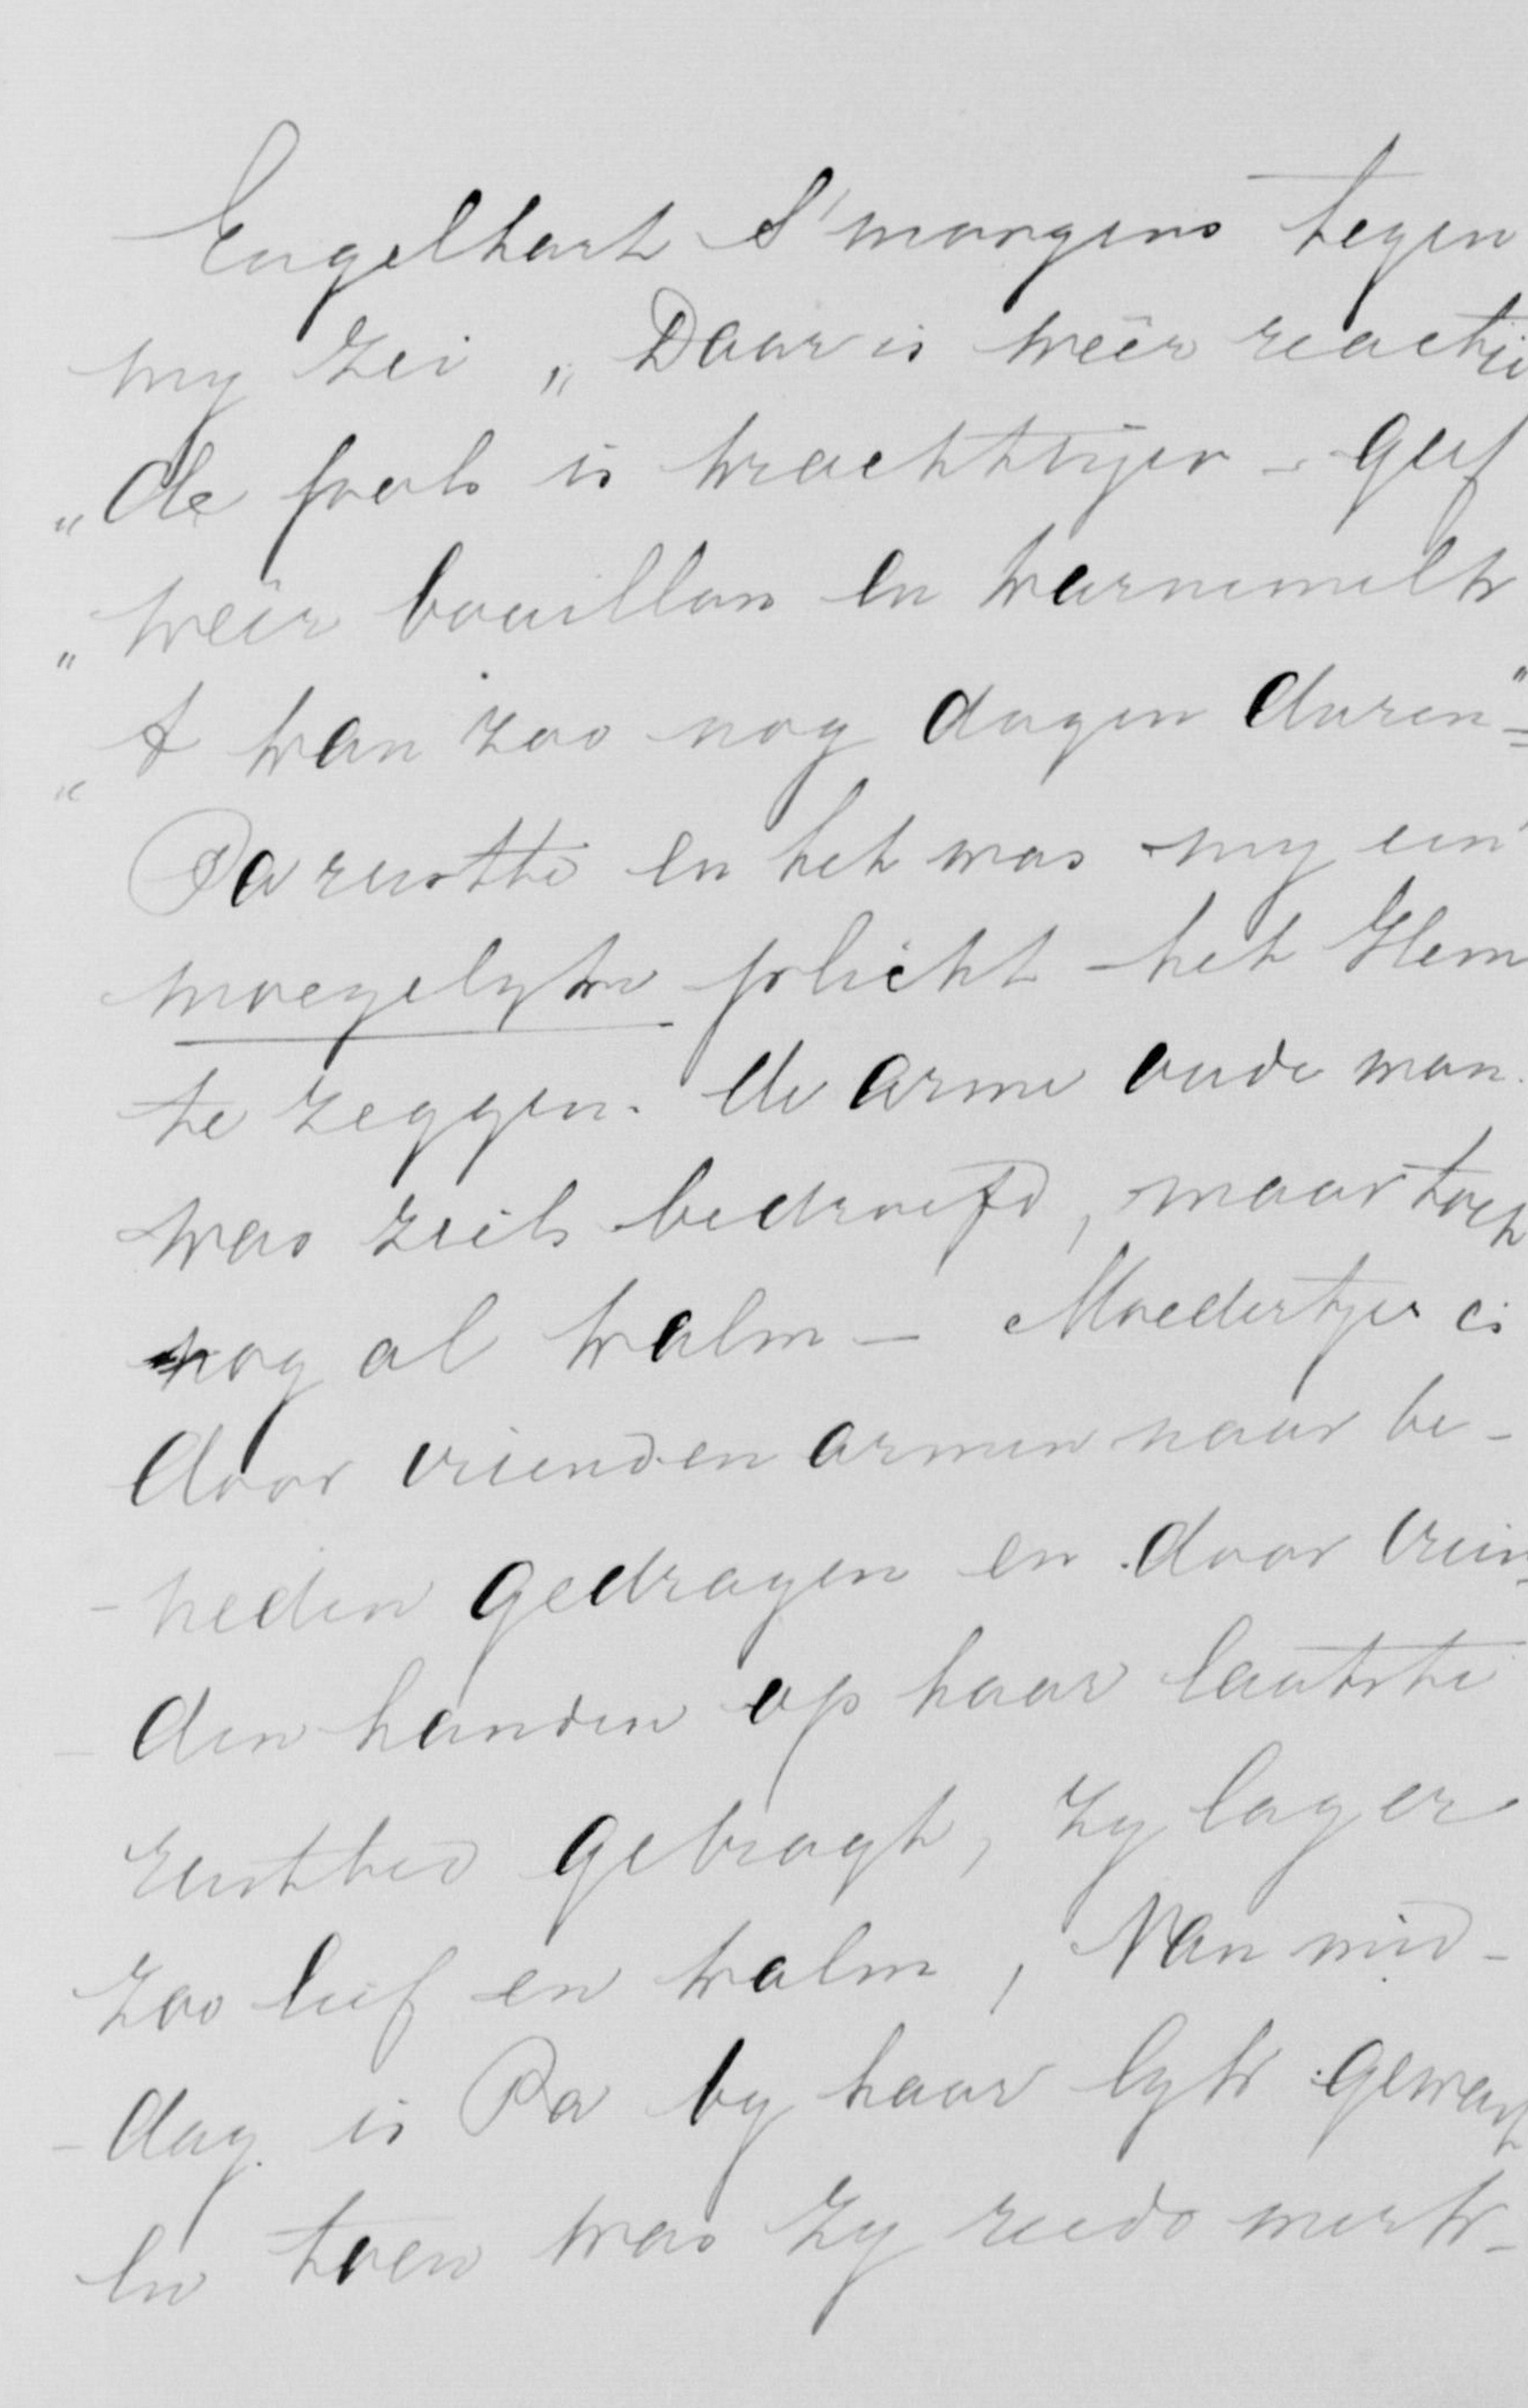 Engelhart S'morgens tegen
my zei „Daar is weêr reactie
„de pols is krachtiger - geef
„weêr bouillon en karnemelk
„t kan zoo nog dagen duren"=
Pa rustte en het was my een
moeyelyke plicht het Hem
te zeggen. de arme oude man.
was zeêr bedroefd, maar toch
nog al kalm - Moedertje is
door vrienden armen naar be-
-neden gedragen en door vrien-
-den handen op haar laatste
rustbed gebragt, zy lag er
zoo lief en kalm, Van mid-
-dag is Pa by haar lyk geweest
en toen was zy reeds merk-